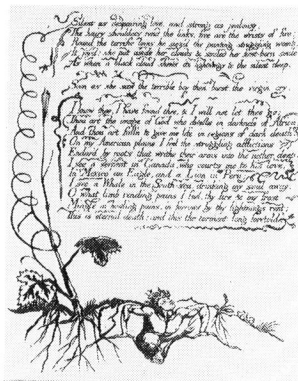 Silent as despairing love, and strong as jealousy,
The hairy shoulders rend the links, free are the wrists of fire;
Round the terrific loins he siez'd the panting struggling womb;
It joy'd: she put aside her clouds & smiled her first-born smile;
As when a black cloud shews its lightnings to the silent deep.
Soon as she saw the terrible boy then burst the virgin cry.
I know thee, I have found thee, & I will not let thee go;
Thou art the image of God who dwells in darkness of Africa;
And thou art fall'n to give me life in regions of dark death.
On my American plains I feel the struggling afflictions
Endur'd by roots that writhe their arms into the nether deep:
I see a serpent in Canada, who courts me to his love;
In Mexico an Eagle, and a Lion in Peru;
I see a Whale in the South-sea, drinking my soul away.
O what limb rending pains I feel. thy fire & my frost
Mingle in howling pains, in furrows by thy lightnings rent;
This is eternal death; and this the torment long foretold.